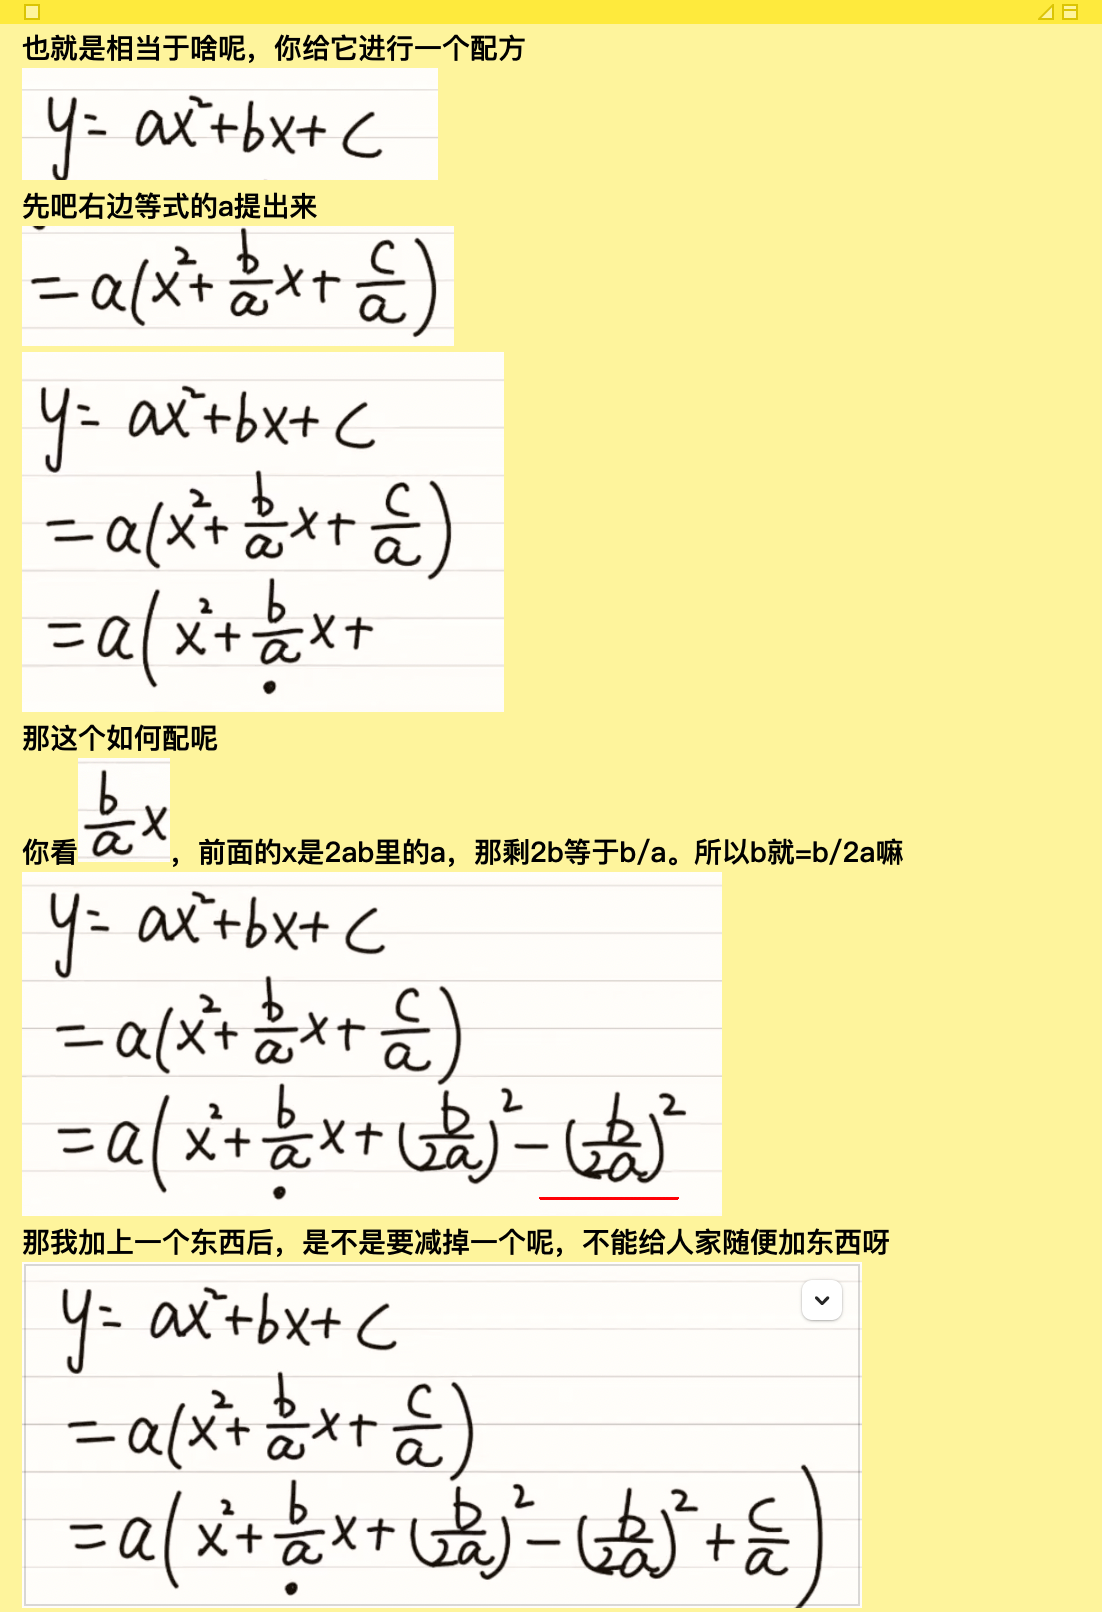 也就是相当于啥呢，你给它进行一个配方
y= ax²+bx+c
先吧右边等式的a提出来
=a(x²+b/a x+c/a)
y= ax²+bx+c
=a(x²+b/a x+c/a)
=a(x²+b/a x+
那这个如何配呢
你看b/a x，前面的x是2ab里的a，那剩2b等于b/a。所以b就=b/2a嘛
y= ax²+bx+c
=a(x²+b/a x+c/a)
=a(x²+b/a x+(b/2a)²-(b/2a)²
那我加上一个东西后，是不是要减掉一个呢，不能给人家随便加东西呀
y= ax²+bx+c
=a(x²+b/a x+c/a)
=a(x²+b/a x+(b/2a)²-(b/2a)²+c/a)